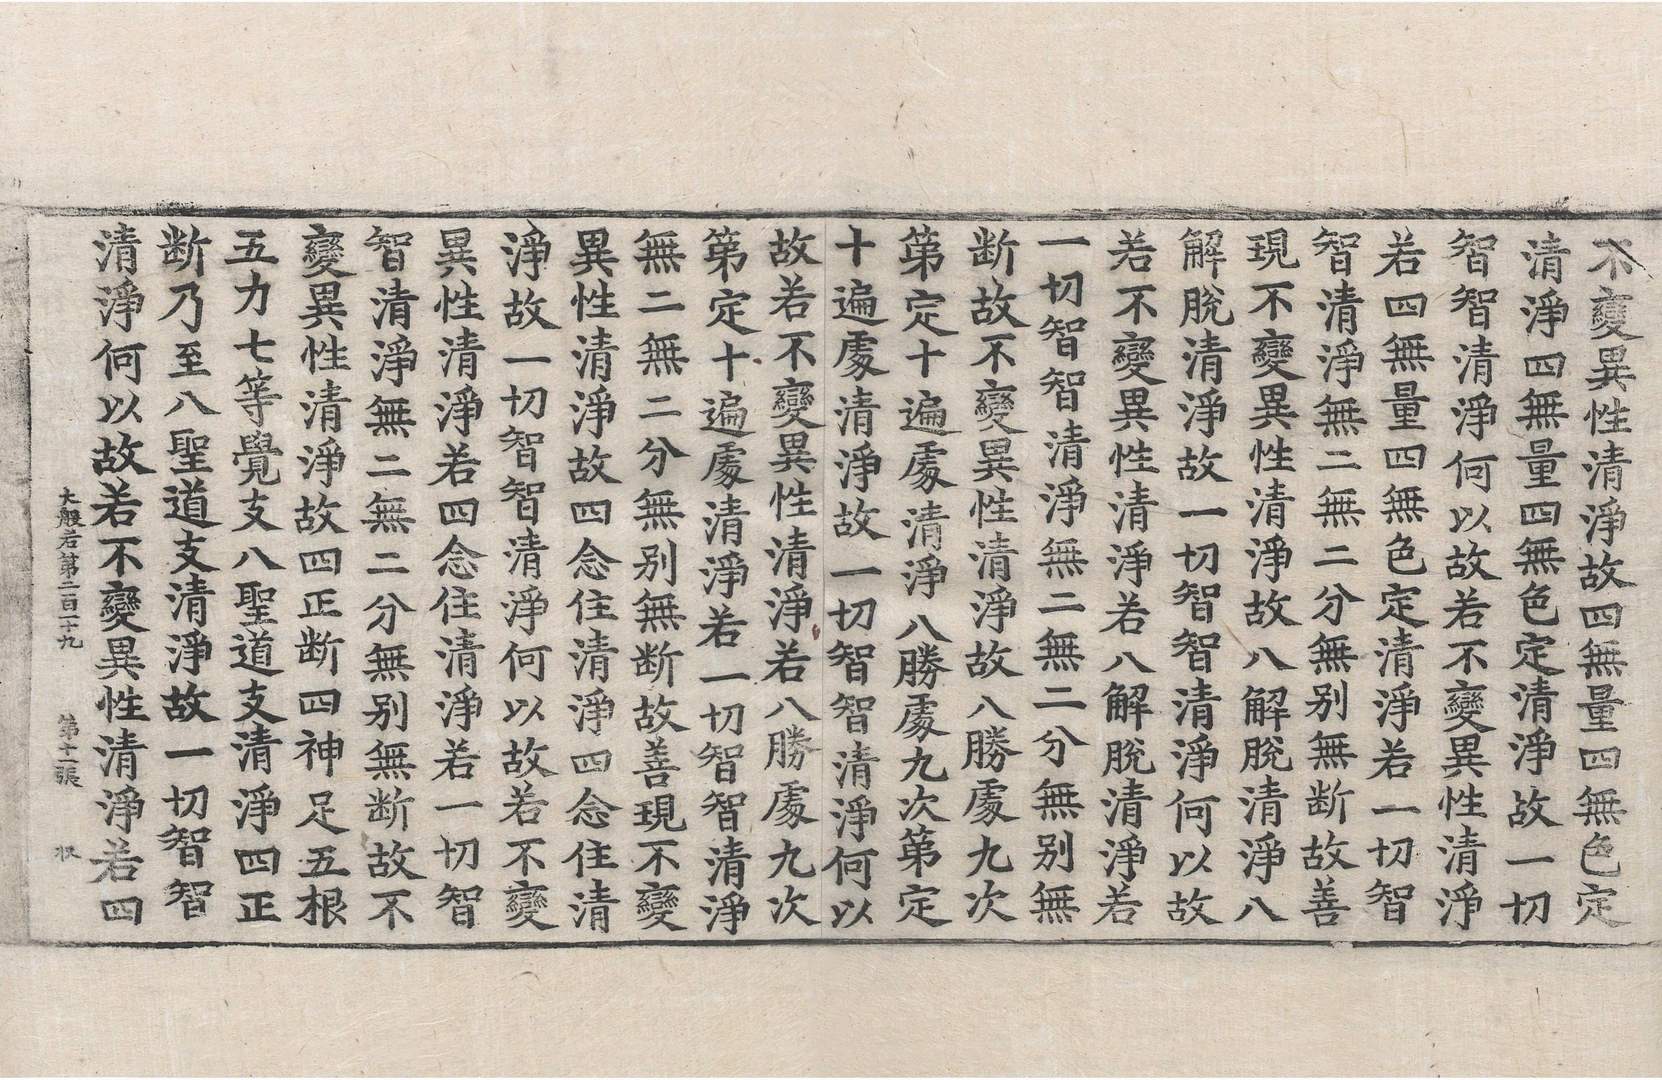 不變異性清淨故四無量四無色定
清淨四無量四無色定清淨故一切
智智清淨何以故若不變異性清淨
若四無量四無色定清淨若一切智
智清淨無二無二分無別無斷故善
現不變異性清淨故八解脫清淨八
解脫清淨故一切智智清淨何以故
若不變異性清淨若八解脫清淨若
一切智智清淨無二無二分無別無
斷故不變異性清淨故八勝處九次
第定十遍處清淨八勝處九次第定
十遍處清淨故一切智智清淨何以
故若不變異性清淨若八勝處九次
第定十遍處清淨若一切智智清淨
無二無二分無別無斷故善現不變
異性清淨故四念住清淨四念住清
淨故一切智智清淨何以故若不變
異性清淨若四念住清淨若一切智
智清淨無二無二分無別無斷故不
變異性清淨故四正斷四神足五根
五力七等覺支八聖道支清淨四正
斷乃至八聖道支清淨故一切智智
清淨何以故若不變異性清淨若四
大般若第二百二十九 第十二張